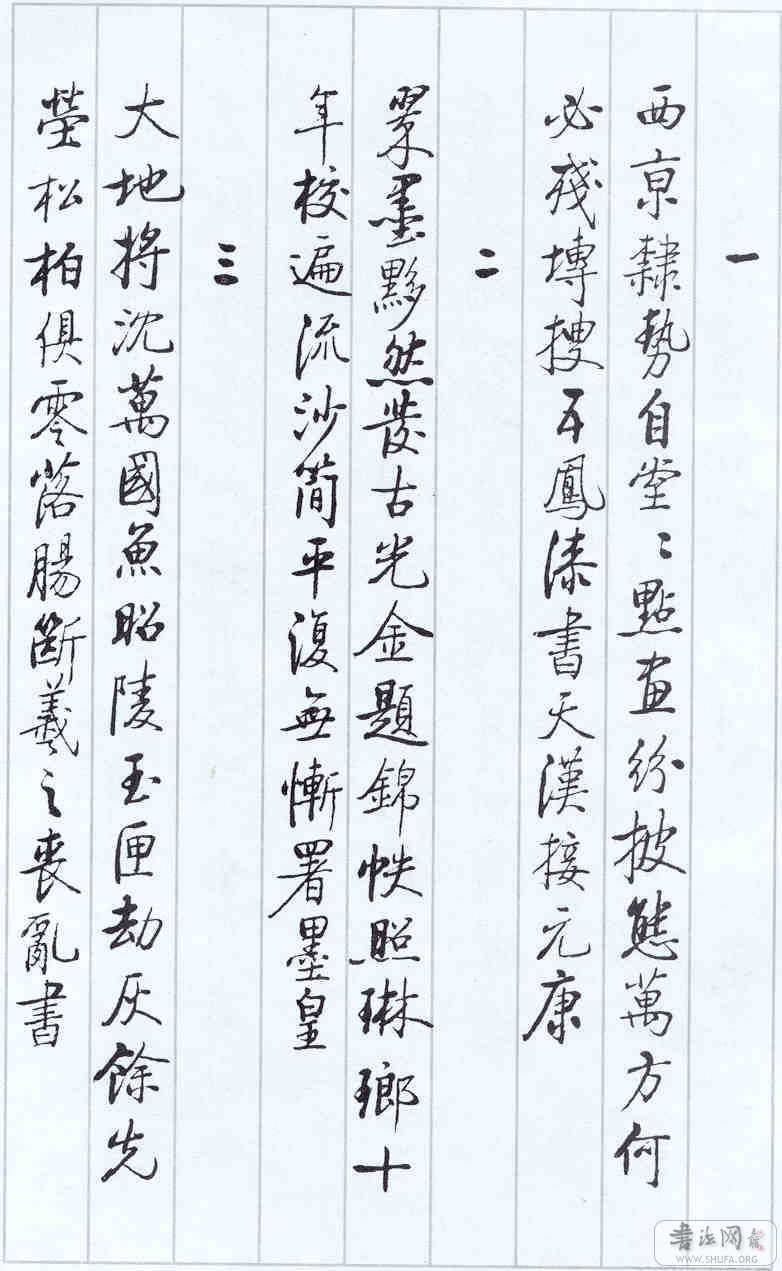 一
西京隸勢自堂〻點畫紛披態萬方何
必殘塼搜五鳳漆書天漢接元康
二
翠墨黟然發古光金題錦帙照琳瑯十
年校遍流沙簡平復無慚署墨皇
三
大地將沈萬國魚昭陵玉匣劫灰餘先
塋松柏俱零落腸斷羲之喪亂書
书法网
WWW.SHUFA.ORG